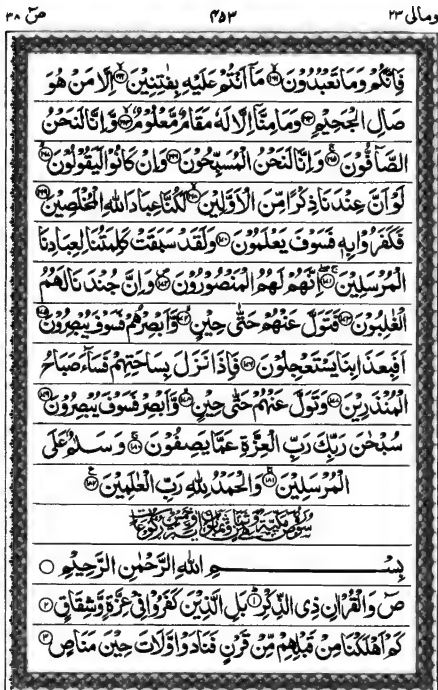 وماٰلی ۲۳ ۴۵۳ صٓ ۳۸
فَاِنَّكُمْ وَمَا تَعْبُدُوْنَ ۝۱۶۱ مَاۤ اَنْتُمْ عَلَيْهِ بِفٰتِنِيْنَ ۝۱۶۲ اِلَّا مَنْ هُوَ
صَالِ الْجَحِيْمِ ۝۱۶۳ وَمَا مِنَّاۤ اِلَّا لَهٗ مَقَامٌ مَّعْلُوْمٌ ۝۱۶۴ وَّاِنَّا لَنَحْنُ
الصَّآفُّوْنَ ۝۱۶۵ وَاِنَّا لَنَحْنُ الْمُسَبِّحُوْنَ ۝۱۶۶ وَاِنْ كَانُوْا لَيَقُوْلُوْنَ ۝۱۶۷
لَوْ اَنَّ عِنْدَنَا ذِكْرًا مِّنَ الْاَوَّلِيْنَ ۝۱۶۸ لَكُنَّا عِبَادَ اللّٰهِ الْمُخْلَصِيْنَ ۝۱۶۹
فَكَفَرُوْا بِهٖ فَسَوْفَ يَعْلَمُوْنَ ۝۱۷۰ وَلَقَدْ سَبَقَتْ كَلِمَتُنَا لِعِبَادِنَا
الْمُرْسَلِيْنَ ۝۱۷۱ اِنَّهُمْ لَهُمُ الْمَنْصُوْرُوْنَ ۝۱۷۲ وَاِنَّ جُنْدَنَا لَهُمُ
الْغٰلِبُوْنَ ۝۱۷۳ فَتَوَلَّ عَنْهُمْ حَتّٰى حِيْنٍ ۝۱۷۴ وَّاَبْصِرْهُمْ فَسَوْفَ يُبْصِرُوْنَ ۝۱۷۵
اَفَبِعَذَابِنَا يَسْتَعْجِلُوْنَ ۝۱۷۶ فَاِذَا نَزَلَ بِسَاحَتِهِمْ فَسَآءَ صَبَاحُ
الْمُنْذَرِيْنَ ۝۱۷۷ وَتَوَلَّ عَنْهُمْ حَتّٰى حِيْنٍ ۝۱۷۸ وَّاَبْصِرْ فَسَوْفَ يُبْصِرُوْنَ ۝۱۷۹
سُبْحٰنَ رَبِّكَ رَبِّ الْعِزَّةِ عَمَّا يَصِفُوْنَ ۝۱۸۰ وَسَلٰمٌ عَلَى
الْمُرْسَلِيْنَ ۝۱۸۱ وَالْحَمْدُ لِلّٰهِ رَبِّ الْعٰلَمِيْنَ ۝۱۸۲
بِسْمِ اللّٰهِ الرَّحْمٰنِ الرَّحِيْمِ ۝
صٓ وَالْقُرْاٰنِ ذِي الذِّكْرِ ۝۱ بَلِ الَّذِيْنَ كَفَرُوْا فِيْ عِزَّةٍ وَّشِقَاقٍ ۝۲
كَمْ اَهْلَكْنَا مِنْ قَبْلِهِمْ مِّنْ قَرْنٍ فَنَادَوْا وَّلَاتَ حِيْنَ مَنَاصٍ ۝۳